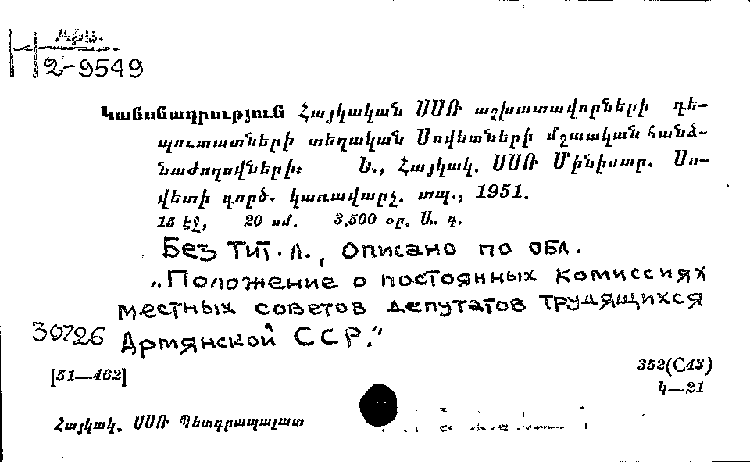 Арм.
2-9549
Կանոնադրություն Հայկական ՍՍՌ աշխատավորների դե-
պուտատների տեղական Սովետների մշտական հանձ-
նաժողովների։ Ե., Հայկակ. ՍՍՌ Մինիստր. Սո-
վետի գործ. կառավարչ. տպ., 1951.
15 էջ, 20 սմ. 3,500 օր. Ա. գ.
Без тит. л., описано по обл.
„Положение о постоянных комиссиях
местных советов депутатов трудящихся
30726 Армянской ССР."
[51—462] 352(С43)
Կ—21
Հայկակ. ՍՍՌ Պետգրապալատ